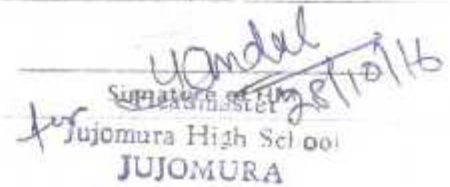 28/10/16
Signature of HM
Headmaster
for Jujomura High School
JUJOMURA